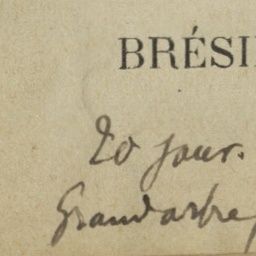 BRÉSI
20 jour.
Grandarbre